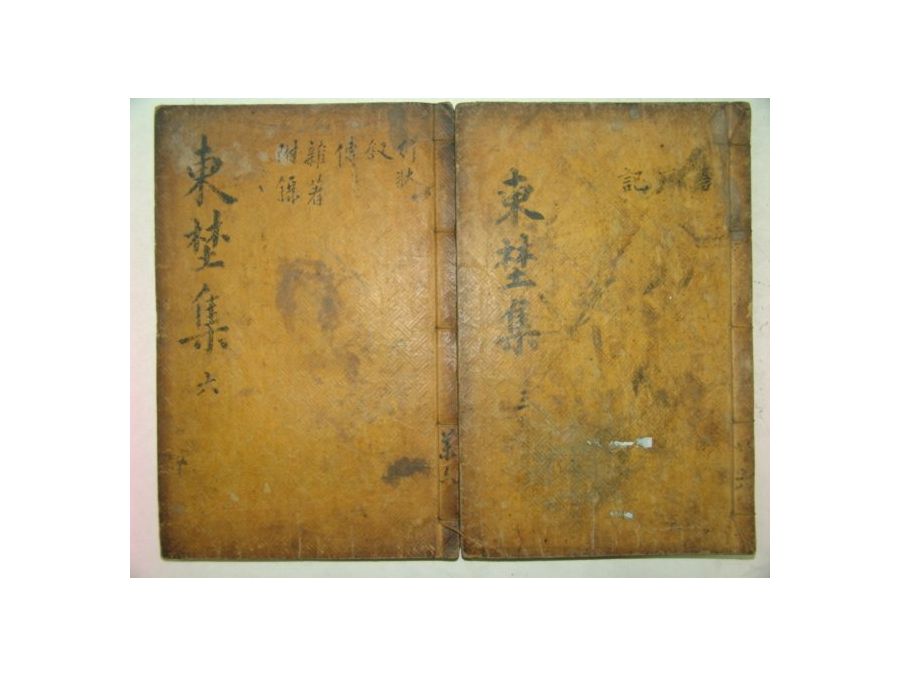 東埜集 三
記
行狀
叙
傳
雜著
附錄
東埜集 六